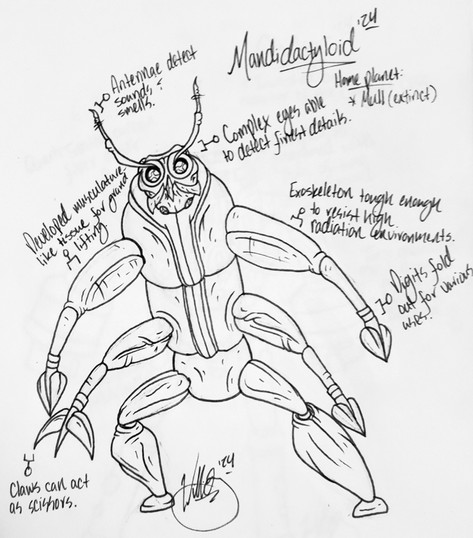 Mandidactyloid '24
Home planet:
* Mull (extinct)
Antennae detect
sounds &
smells.
Complex eyes able
to detect finest details.
Developed musculature
like tissue for grand
lifting
Exoskeleton tough enough
to resist high
radiation environments.
Digits fold
out for various
uses.
Claws can act
as scissors.
'24